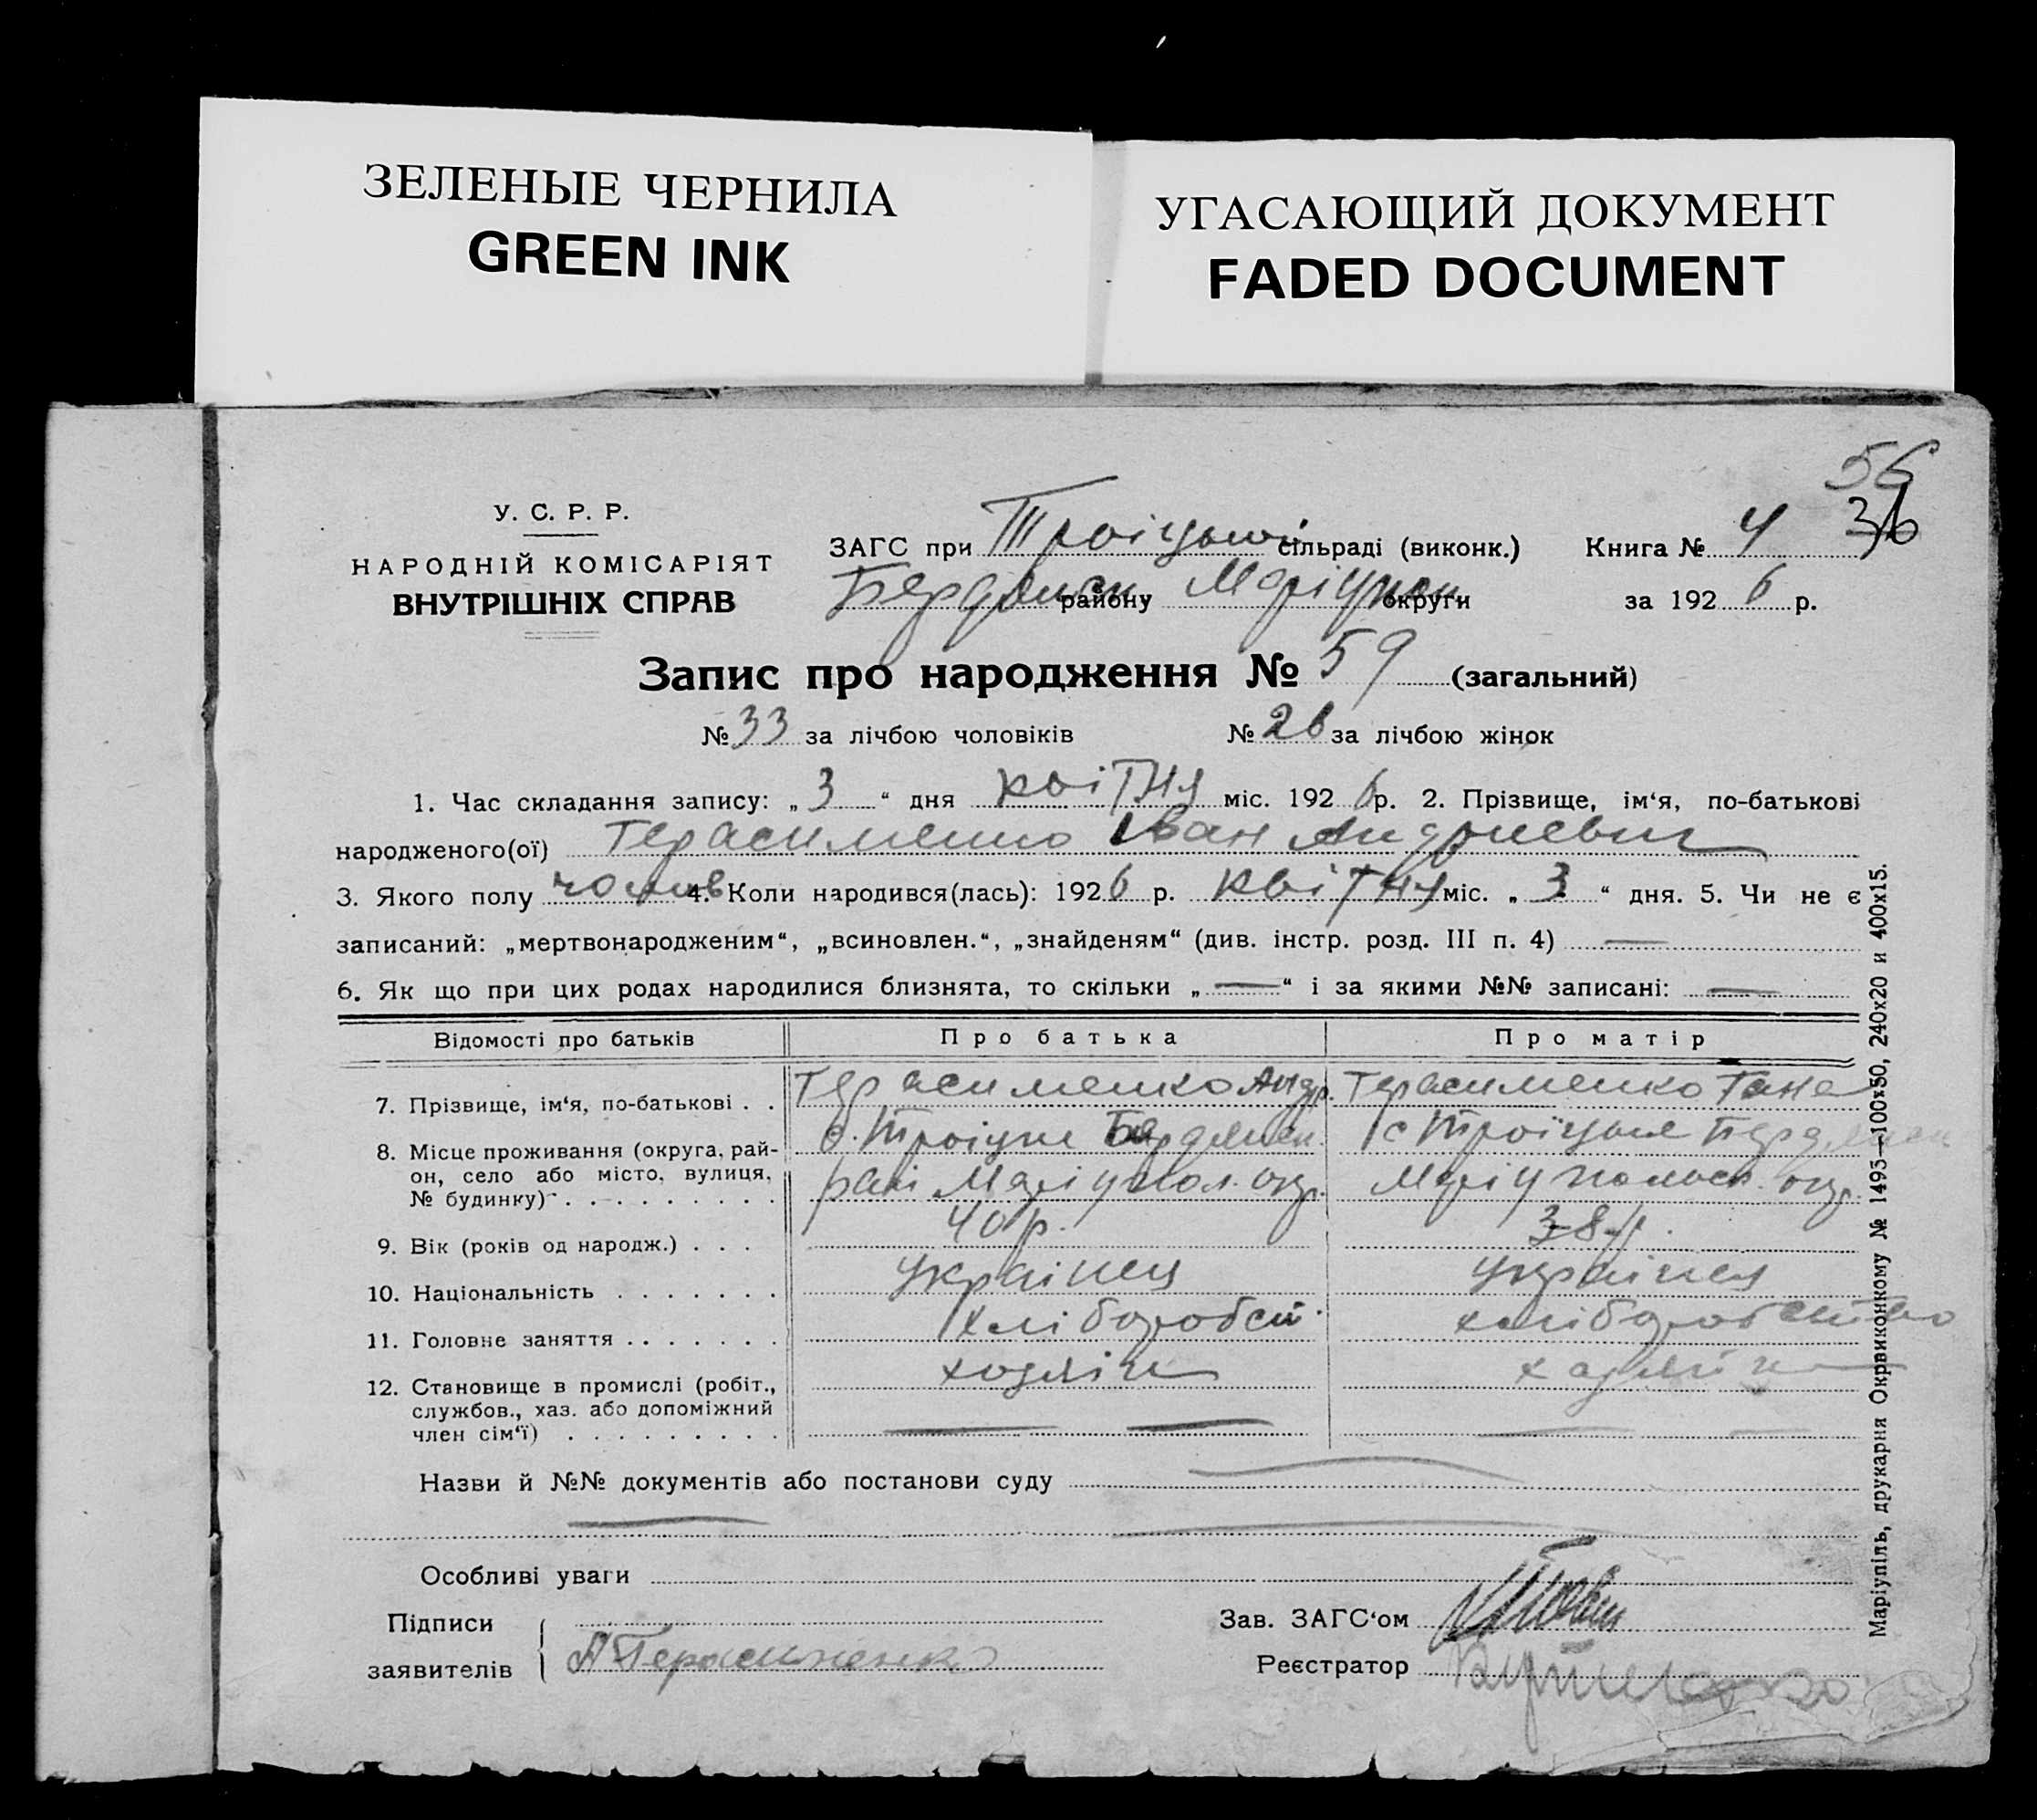 ЗЕЛЕНЫЕ ЧЕРНИЛА
GREEN INK
УГАСАЮЩИЙ ДОКУМЕНТ
FADED DOCUMENT
56
36
У. С. Р. Р.
НАРОДНІЙ КОМІСАРІЯТ
ВНУТРІШНІХ СПРАВ
ЗАГС при Троіцькій сільраді (виконк.) Книга № 4
Бердянськ району Маріупол. округи за 1926 р.
Запис про народження № 59 (загальний)
№ 33 за лічбою чоловіків № 26 за лічбою жінок
1. Час складання запису: „3“ дня квітня міс. 1926 р. 2. Прізвище, ім‘я, по-батькові
народженого(ої) Герасименко Іван Андриевич
3. Якого полу чолов 4. Коли народився(лась): 1926 р. квітня міс. „3“ дня. 5. Чи не є
записаний: „мертвонародженим“, „всиновлен.“, „знайденям“ (див. інстр. розд. III п. 4) —
6. Як що при цих родах народилися близнята, то скільки „—“ і за якими №№ записані: —
Відомості про батьків Про батька Про матір
7. Прізвище, ім‘я, по-батькові . . Герасименко Андр. Герасименко Гана
8. Місце проживання (округа, рай- с. Троіцьке Бердянськ. с Троїцьке Бердянськ
он, село або місто, вулиця, рай Маріупол. окр. Маріупольск. окр.
№ будинку) . . . . . . . . .
9. Вік (років од народж.) . . . 40 р. 38 р.
10. Національність . . . . . . . українец українец
11. Головне заняття . . . . . . . хліборобст. хліборобство
12. Становище в промислі (робіт., хозяін хазяін
службов., хаз. або допоміжний
член сім‘ї) . . . . . . . . . — — — —
Назви й №№ документів або постанови суду —
— —
Особливі уваги
Підписи Зав. ЗАГС‘ом
заявителів А Герасименко Реєстратор
Маріупіль, друкарня Окрвиконкому № 1493—100×50, 240×20 и 400×15.